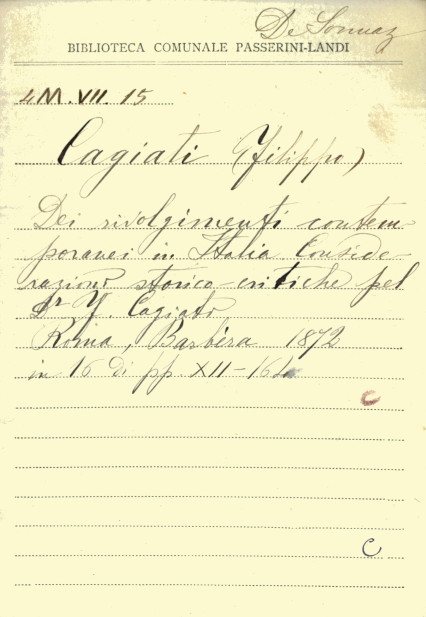 De Sonnaz
BIBLIOTECA COMUNALE PASSERINI-LANDI
4M.VII.15
Cagiati (Filippo)
Dei rivolgimenti contem-
poranei in Italia Conside-
razioni storico-critiche pel
Dr F. Cagiati
Roma, Barbèra 1872
in 16 di pp. XII-164
C
C